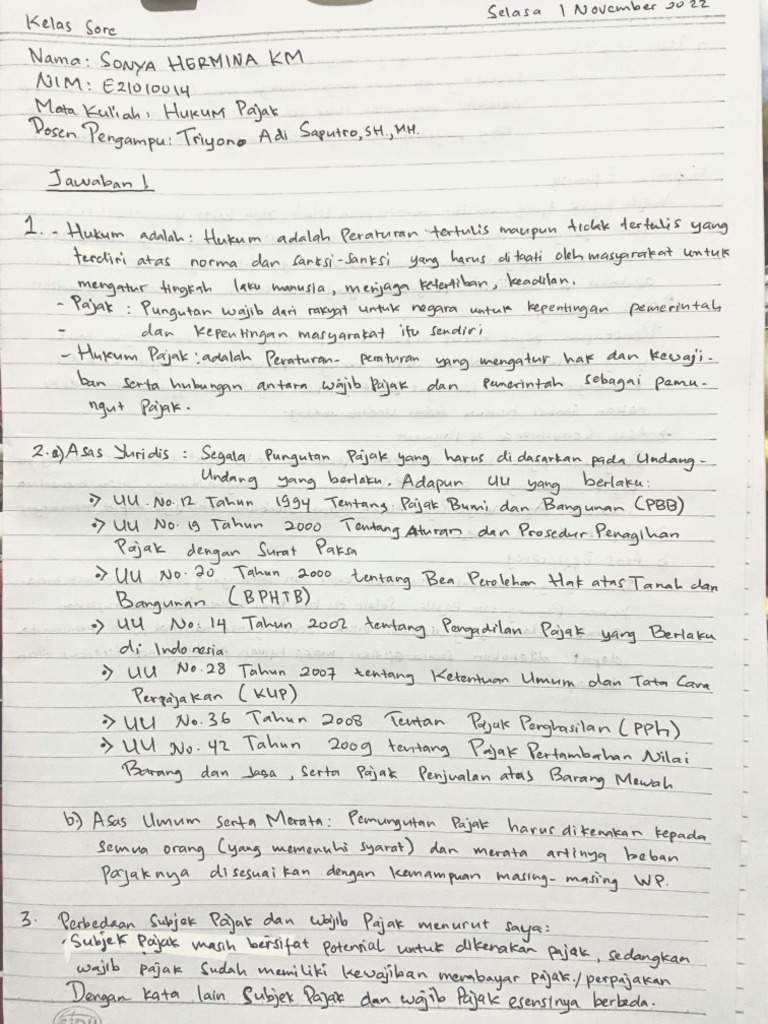 Kelas Sore
Selasa 1 November 2022
Nama: SONYA HERMINA KM
NIM: E21010014
Mata Kuliah: Hukum Pajak
Dosen Pengampu: Triyono Adi Saputro, SH., MH.
Jawaban!
1. - Hukum adalah: Hukum adalah Peraturan tertulis maupun tidak tertulis yang
terdiri atas norma dan sanksi-sanksi yang harus ditaati oleh masyarakat untuk
mengatur tingkah laku manusia, menjaga ketertiban, keadilan.
- Pajak : Pungutan wajib dari rakyat untuk negara untuk kepentingan pemerintah
- dan kepentingan masyarakat itu sendiri
- Hukum Pajak : adalah Peraturan- peraturan yang mengatur hak dan kewaji-
ban serta hubungan antara wajib Pajak dan Pemerintah sebagai pemu-
ngut Pajak.
2. a) Asas Yuridis : Segala Pungutan Pajak yang harus didasarkan pada Undang-
Undang yang berlaku. Adapun UU yang berlaku:
=> UU. No. 12 Tahun 1994 Tentang Pajak Bumi dan Bangunan (PBB)
=> UU No. 19 Tahun 2000 Tentang Aturan dan Prosedur Penagihan
Pajak dengan Surat Paksa
=> UU No. 20 Tahun 2000 tentang Bea Perolehan Hak atas Tanah dan
Bangunan (BPHTB)
=> UU No: 14 Tahun 2002 tentang Pengadilan Pajak yang Berlaku
di Indonesia
=> UU No. 28 Tahun 2007 tentang Ketentuan Umum dan Tata Cara
Perpajakan (KUP)
=> UU No. 36 Tahun 2008 Tentan Pajak Penghasilan (PPh)
=> UU No. 42 Tahun 2009 tentang Pajak Pertambahan Nilai
Barang dan Jasa, serta Pajak Penjualan atas Barang Mewah
b.) Asas Umum serta Merata: Pemungutan Pajak harus dikenakan kepada
semua orang (yang memenuhi syarat) dan merata artinya beban
Pajaknya disesuaikan dengan kemampuan masing-masing WP.
3. Perbedaan Subjek Pajak dan wajib Pajak menurut saya:
. Subjek Pajak masih bersifat potensial untuk dikenakan pajak, sedangkan
wajib pajak sudah memiliki kewajiban membayar pajak./perpajakan
Dengan kata lain Subjek Pajak dan wajib Pajak esensinya berbeda.
SIDU